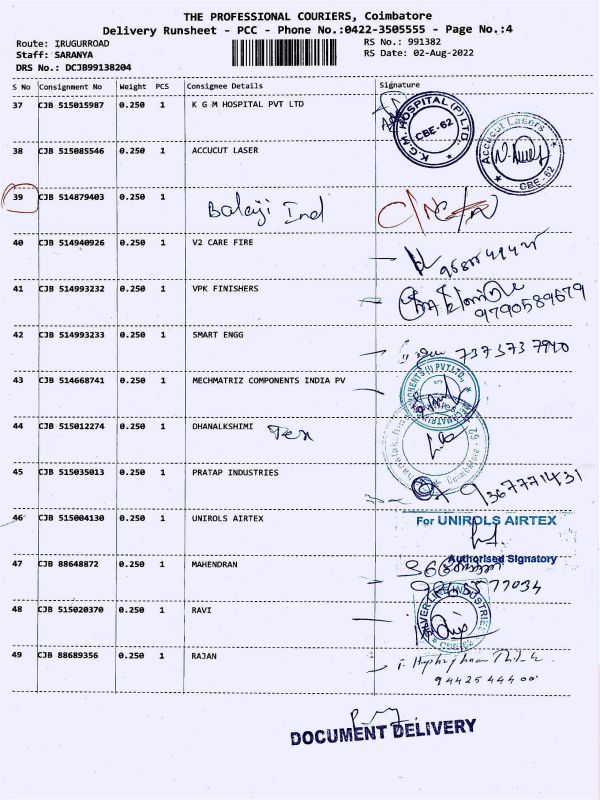 THE PROFESSIONAL COURIERS, Coimbatore
Delivery Runsheet - PCC - Phone No.:0422-3505555 - Page No.:4
Route: IRUGURROAD RS No.: 991382
Staff: SARANYA RS Date: 02-Aug-2022
DRS No.: DCJB99138204
S No Consignment No Weight PCS Consignee Details Signature
37 CJB 515015987 0.250 1 K G M HOSPITAL PVT LTD
K.G.M HOSPITAL (P) LTD. CBE-62
38 CJB 515085546 0.250 1 ACCUCUT LASER
Accucut Lasers CBE-62
39 CJB 514879403 0.250 1 Balaji Ind
40 CJB 514940926 0.250 1 V2 CARE FIRE
41 CJB 514993232 0.250 1 VPK FINISHERS
9790589679
42 CJB 514993233 0.250 1 SMART ENGG
737373 7940
43 CJB 514668741 0.250 1 MECHMATRIZ COMPONENTS INDIA PV
44 CJB 515012274 0.250 1 DHANALKSHIMI Tex
45 CJB 515035013 0.250 1 PRATAP INDUSTRIES
9367771431
46 CJB 515004130 0.250 1 UNIROLS AIRTEX
For UNIROLS AIRTEX
Authorised Signatory
47 CJB 88648872 0.250 1 MAHENDRAN
48 CJB 515020370 0.250 1 RAVI
49 CJB 88689356 0.250 1 RAJAN
94425 444 00
DOCUMENT DELIVERY